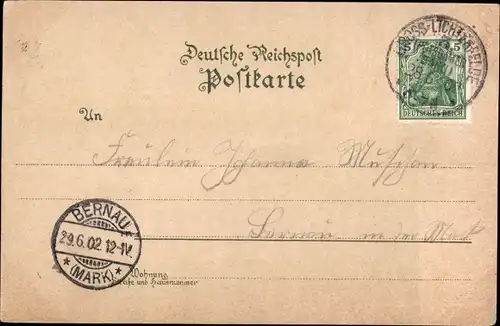 GROSS-LICHTERFELDE
5 5
DEUTSCHES REICH
Deutsche Reichspost
Postkarte
An
Fräulein Johanna
Bernau in der Mark
BERNAU
29.6.02.12-1V.
* (MARK) *
Wohnung
Straße und Hausnummer